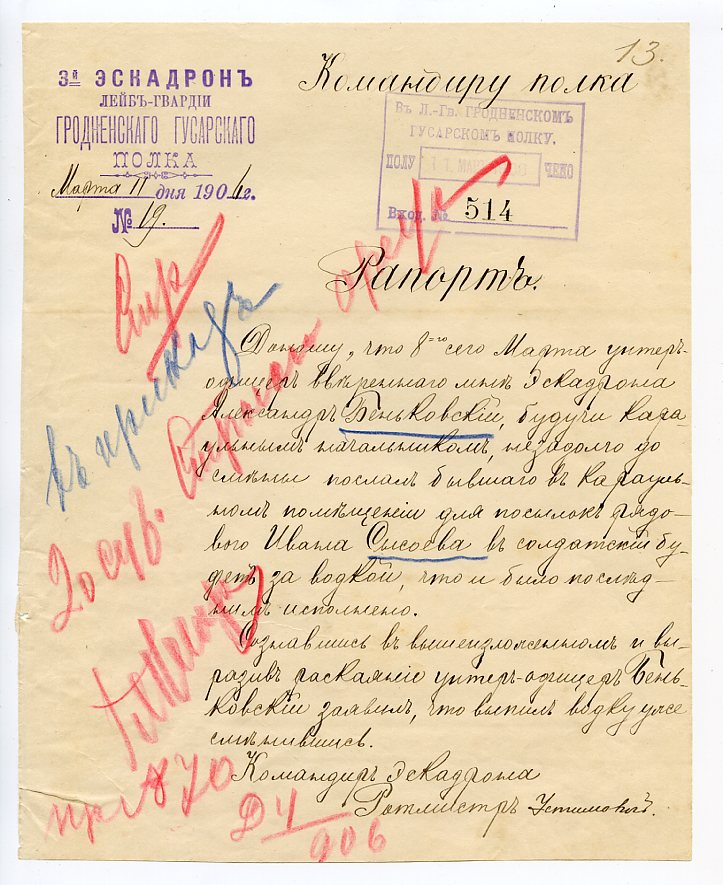 13.
3й ЭСКАДРОНЪ
ЛЕЙБЪ-ГВАРДІИ
ГРОДНЕНСКАГО ГУСАРСКАГО
ПОЛКА
Марта 11 дня 1906г.
№ 19.
Командиру полка
Въ Л.-Гв. ГРОДНЕНСКОМЪ
ГУСАРСКОМЪ ПОЛКУ.
ПОЛУ 11 МАР ЧЕНО
Вход. № 514
Рапортъ.
Доношу, что 8го сего Марта унтеръ-
офицеръ ввѣреннаго мнѣ Эскадрона
Александръ Беньковскій, будучи кара-
ульнымъ начальникомъ, незадолго до
смѣны послалъ бывшаго въ карауль-
номъ помѣщеніи для посылокъ рядо-
вого Ивана Сысоева въ солдатскій бу-
фетъ за водкой, что и было послѣд-
нимъ исполнено.
Сознавшись въ вышеизложенномъ и вы-
разивъ раскаяніе унтеръ-офицеръ Бень-
ковскій заявилъ, что выпилъ водку уже
смѣнившись.
Командиръ Эскадрона
Ротмистръ
въ приказъ
20 сут.
пр. № 70
906